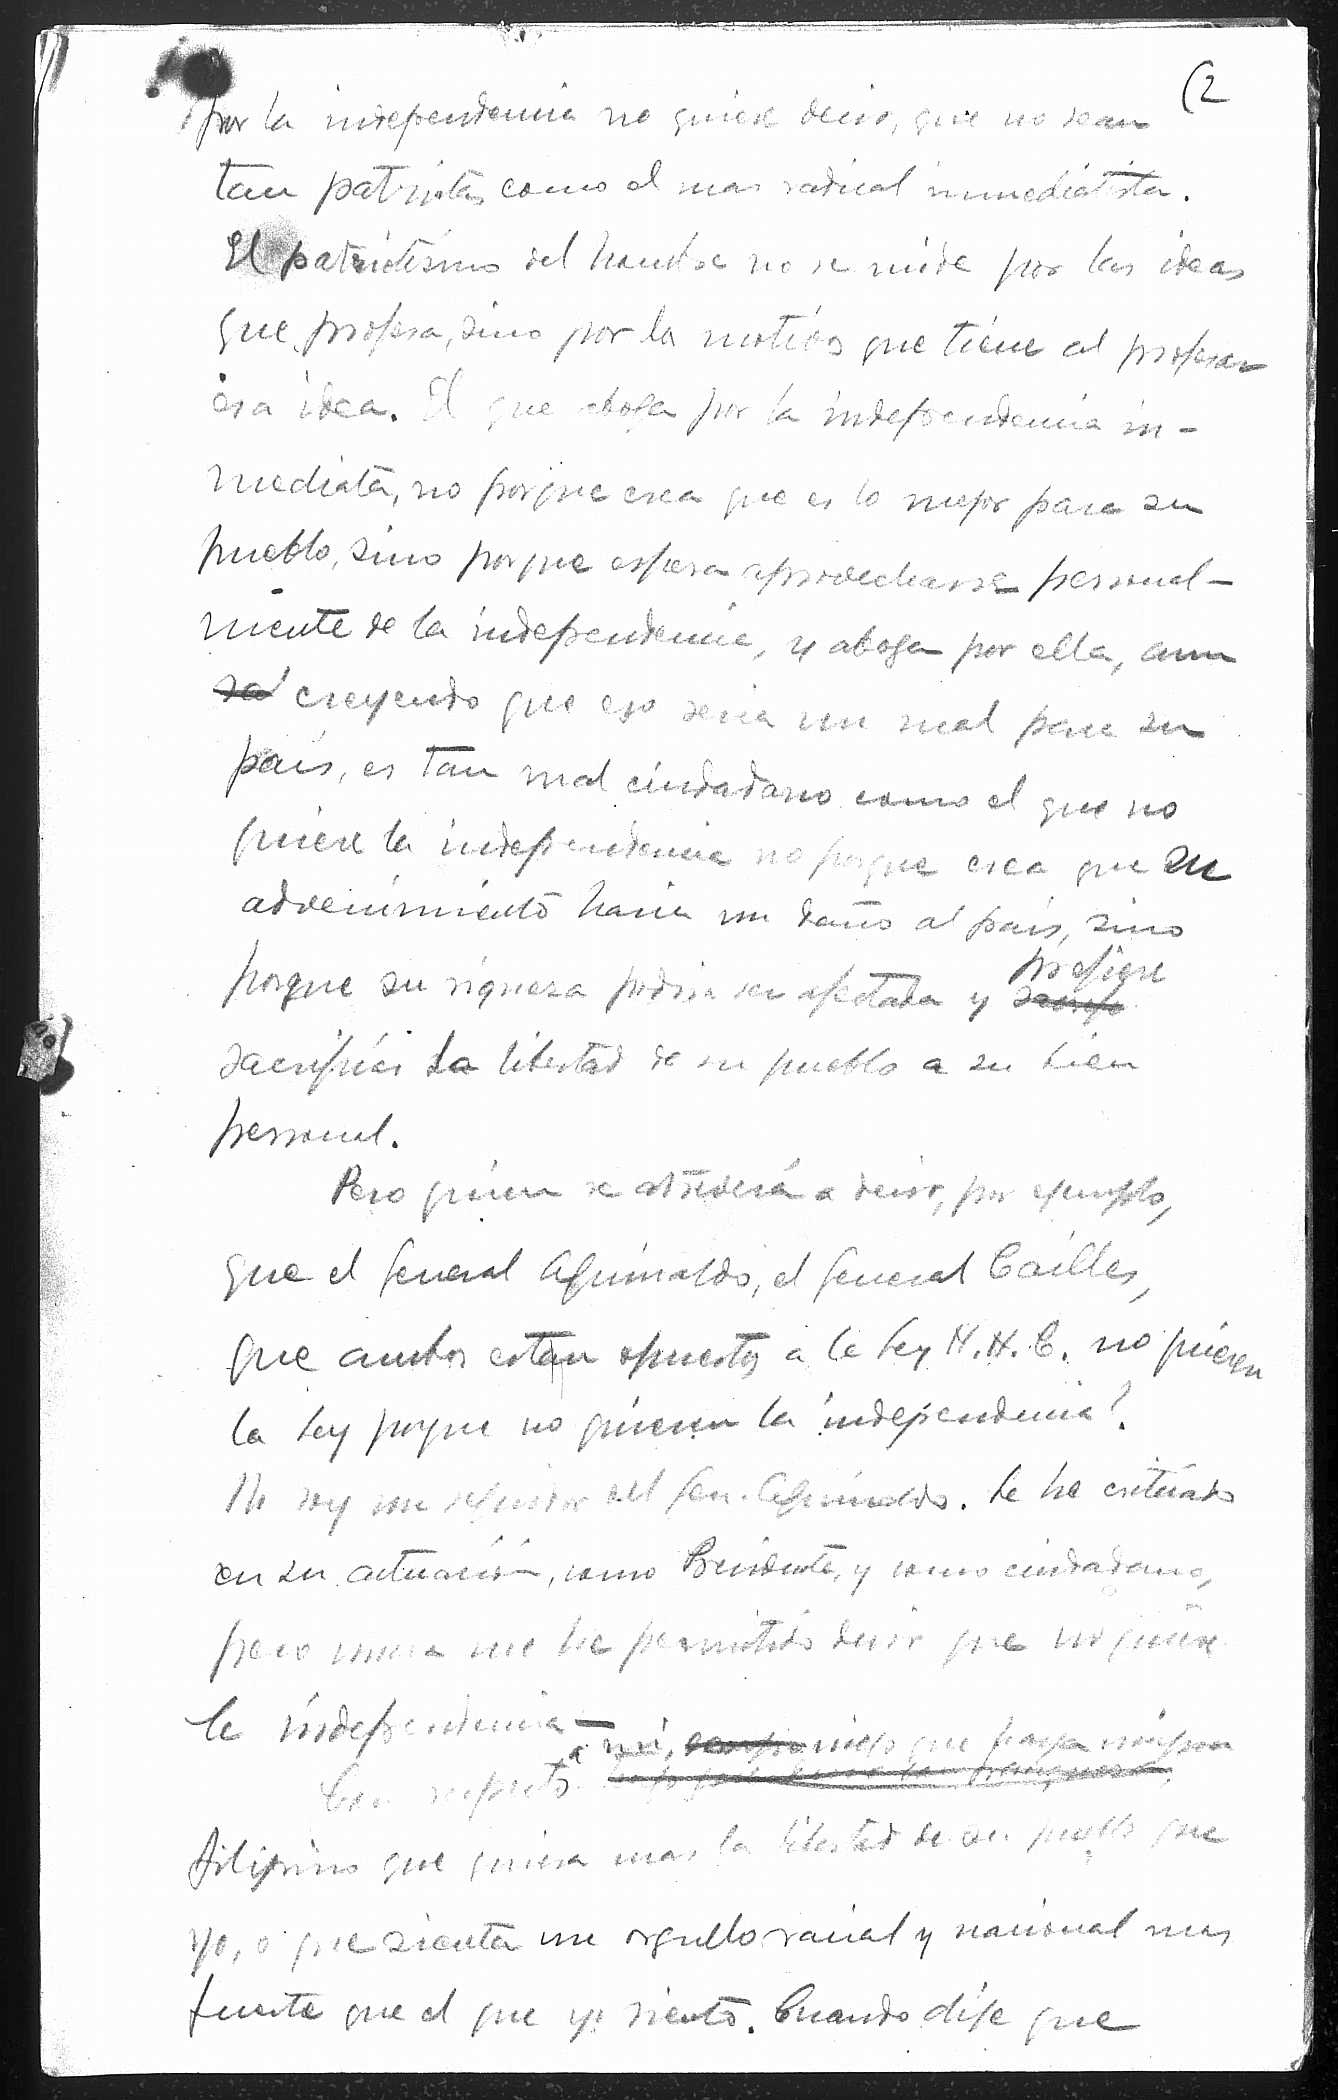 (2
por la independencia no quiere decir, que no sean
tan patriotas como el mas radical inmediatista.
El patriotismo del hombre no se mide por las ideas
que profesa, sino por los motivos que tiene al profesar
esa idea. El que aboga por la independencia in-
mediata, no porque crea que es lo mejor para su
pueblo, sino porque espera aprovecharse personal-
mente de la independencia, y aboga por ella, aun
creyendo que eso seria un mal para su
país, es tan mal ciudadano como el que no
quiere la independencia no porque crea que su
advenimiento haria un daño al país, sino
prefiere
porque su riqueza podria ser afectada y
sacrificar la libertad de su pueblo a su bien
personal.
Pero quien se atreverá a decir, por ejemplo,
que el General Aguinaldo, el General Cailles,
que ambos estan opuestos a la ley H.H.C. no quieren
la ley porque no quieren la independencia?
No soy un seguidor del Gen. Aguinaldo. Le he criticado
en su actuación, como Presidente, y como ciudadano,
pero nunca me he permitido decir que no quiere
la independencia—
Con respecto a mi, niego que haya ningun
filipino que quiera mas la libertad de su pueblo que
yo, o que sienta un orgullo racial y nacional mas
fuerte que el que yo siento. Cuando dije que